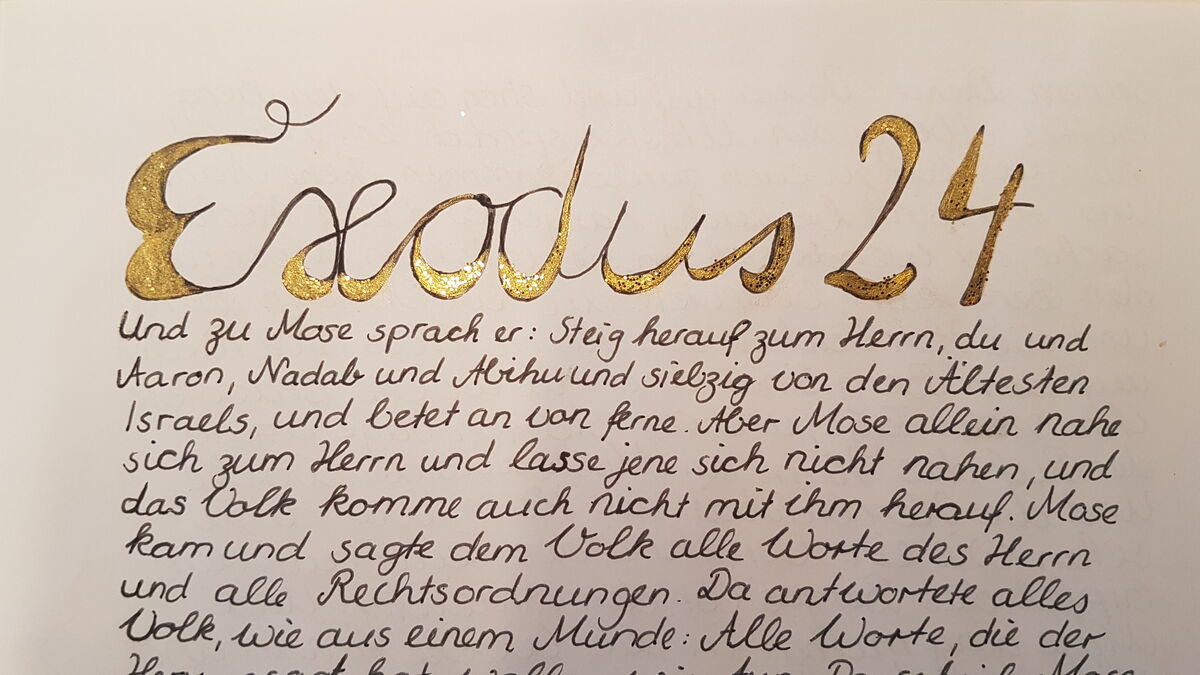 Exodus 24
Und zu Mose sprach er: Steig herauf zum Herrn, du und
Aaron, Nadab und Abihu und siebzig von den Ältesten
Israels, und betet an von ferne. Aber Mose allein nahe
sich zum Herrn und lasse jene sich nicht nahen, und
das Volk komme auch nicht mit ihm herauf. Mose
kam und sagte dem Volk alle Worte des Herrn
und alle Rechtsordnungen. Da antwortete alles
Volk, wie aus einem Munde: Alle Worte, die der
Herr gesagt hat, wollen wir tun. Da schrieb Mose